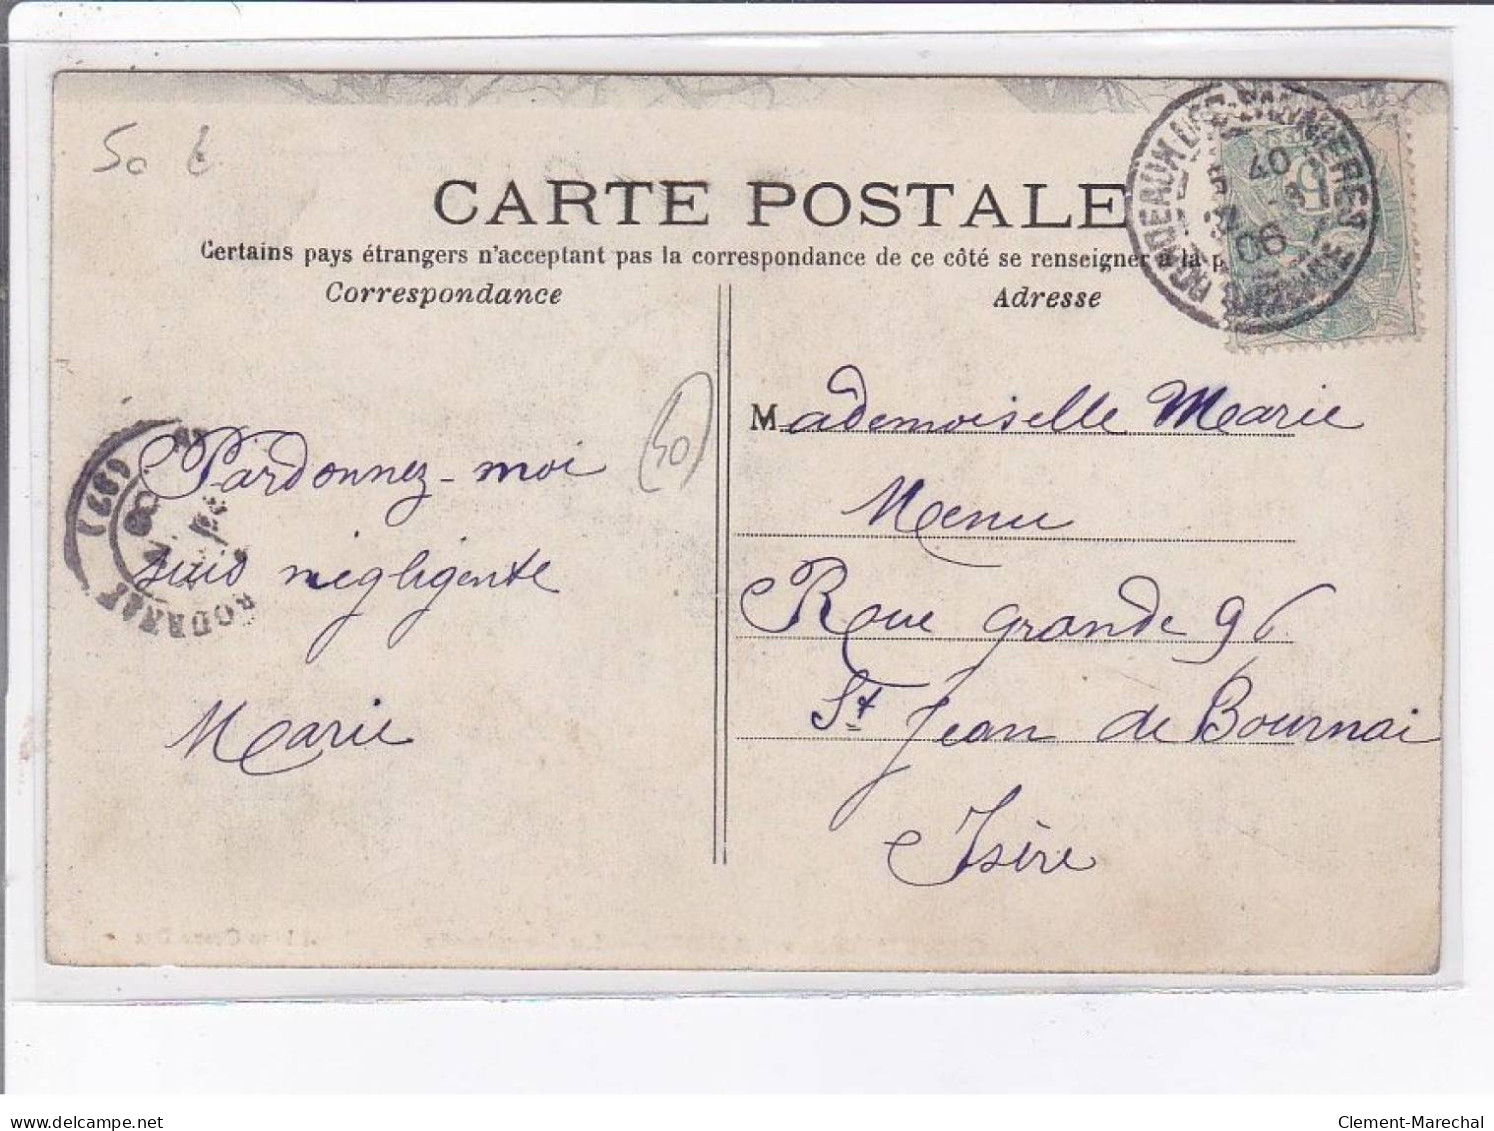 50 €
CARTE POSTALE
Certains pays étrangers n'acceptant pas la correspondance de ce côté se renseigner à la p
Correspondance
Adresse
BORDEAUX
40
06
GIRONDE
5
Mademoiselle Marie
Menu
Rue grande 96
St Jean de Bournai
Isère
(40)
Pardonnez-moi
suis négligente
Marie
delcampe.net
Clement-Marechal